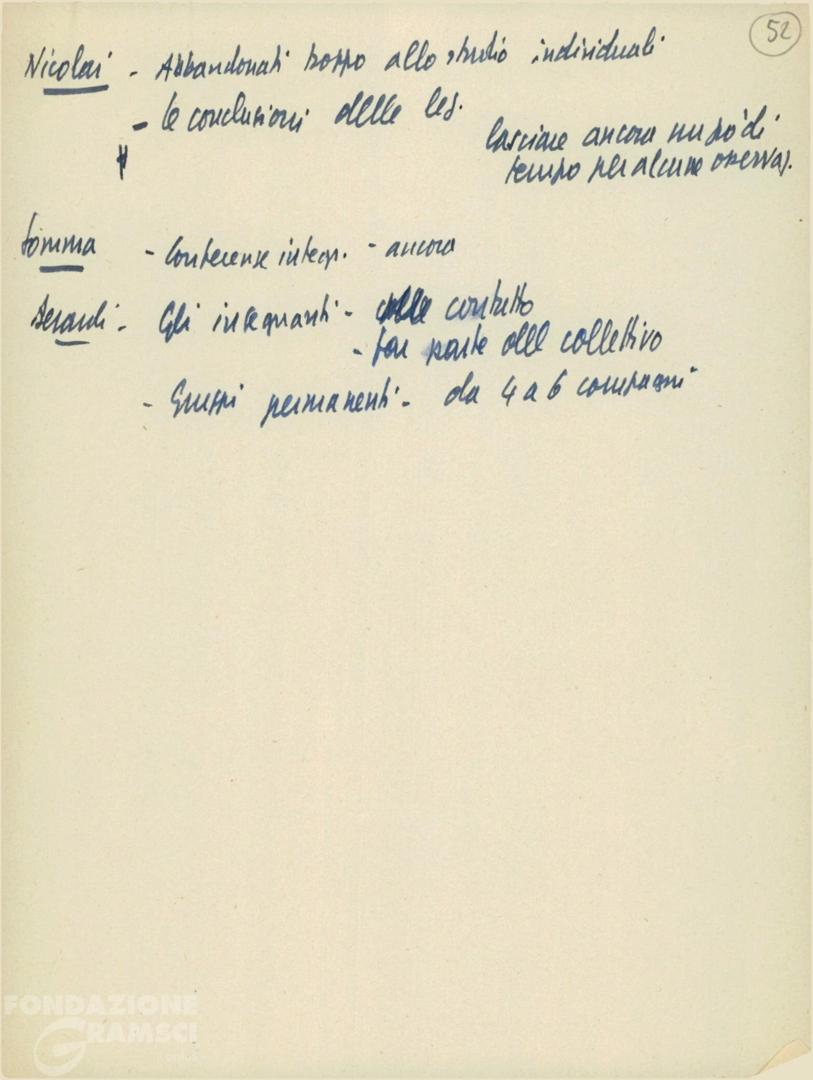 52
Nicolai - Abbandonati troppo allo studio individuali
- le conclusioni delle lez.
lasciare ancora un pò di
tempo per alcune osservaz.
Somma - Conferenze integr. - ancora
- Gli insegnanti - contatto
- far parte del collettivo
- Gruppi permanenti - da 4 a 6 compagni
FONDAZIONE
GRAMSCI